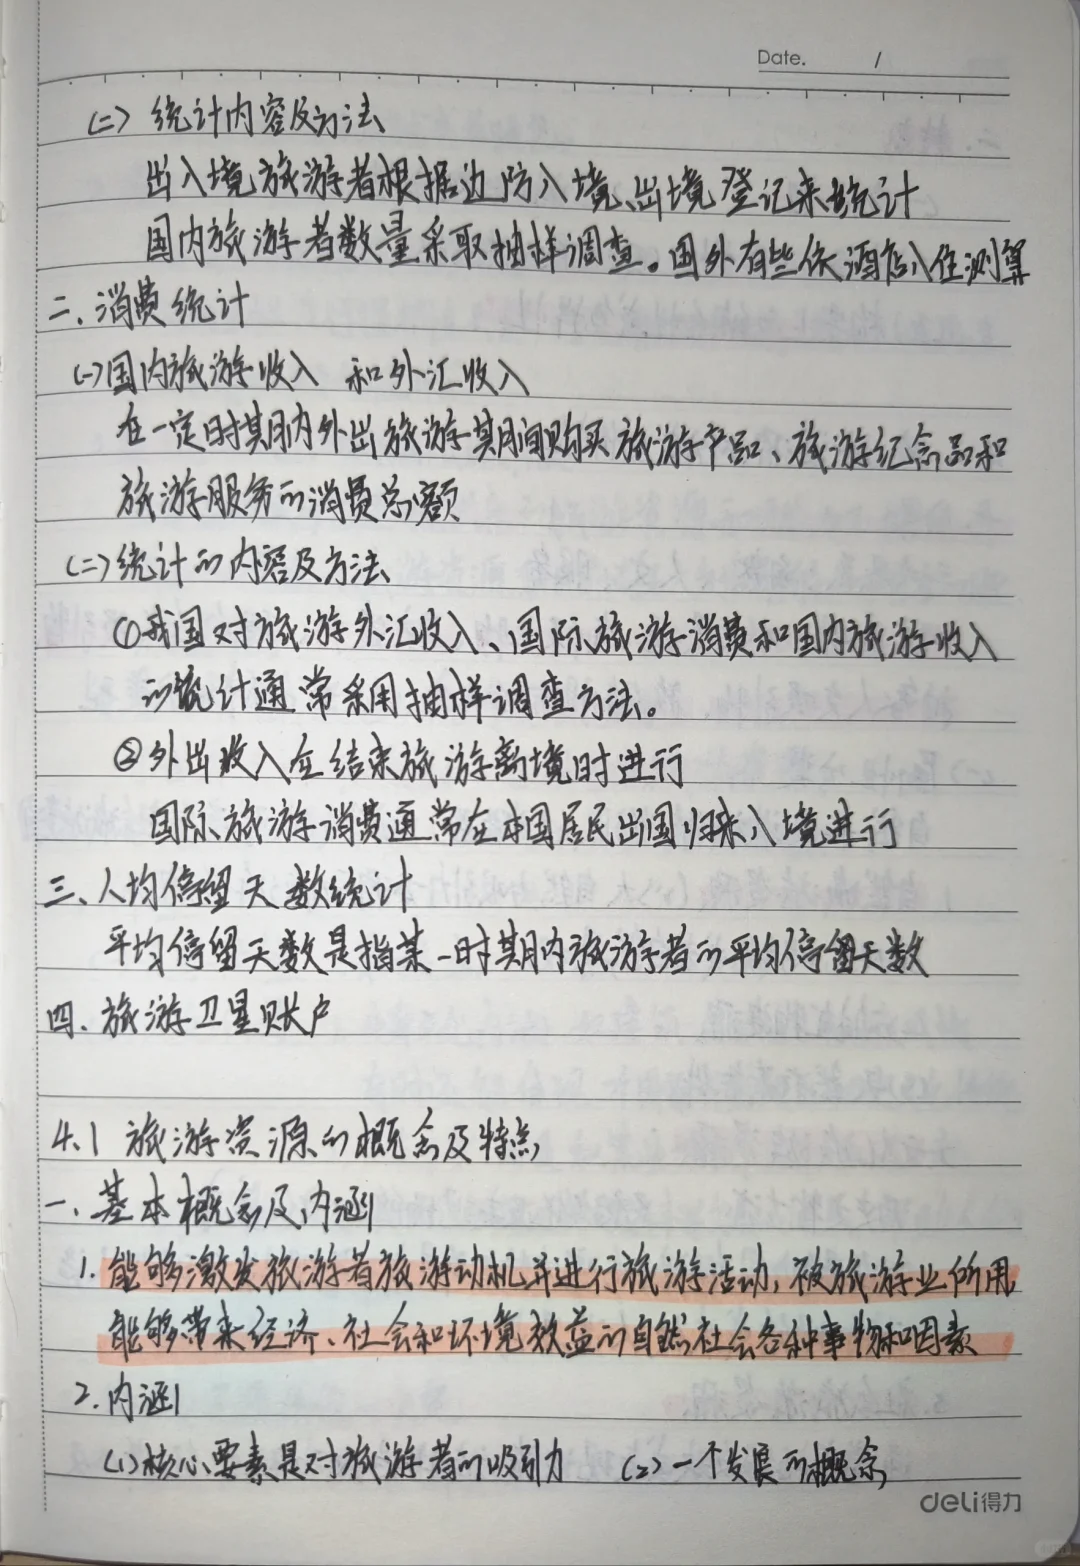 Date. /
(二) 统计内容及方法
出入境旅游者根据边防入境、出境登记来统计
国内旅游者数量采取抽样调查。国外有些依酒店入住测算
二、消费统计
(一)国内旅游收入 和外汇收入
在一定时期内外出旅游期间购买旅游产品、旅游纪念品和
旅游服务的消费总额
(二)统计的内容及方法
①我国对旅游外汇收入、国际旅游消费和国内旅游收入
的统计通常采用抽样调查方法。
②外出收入在结束旅游离境时进行
国际旅游消费通常在本国居民出国归来入境进行
三、人均停留天数统计
平均停留天数是指某一时期内旅游者的平均停留天数
四、旅游卫星账户
4.1 旅游资源的概念及特点
一、基本概念及内涵
1. 能够激发旅游者旅游动机并进行旅游活动，被旅游业所用
能够带来经济、社会和环境效益的自然社会各种事物和因素
2. 内涵
(1)核心要素是对旅游者的吸引力 (2)一个发展的概念
deli得力